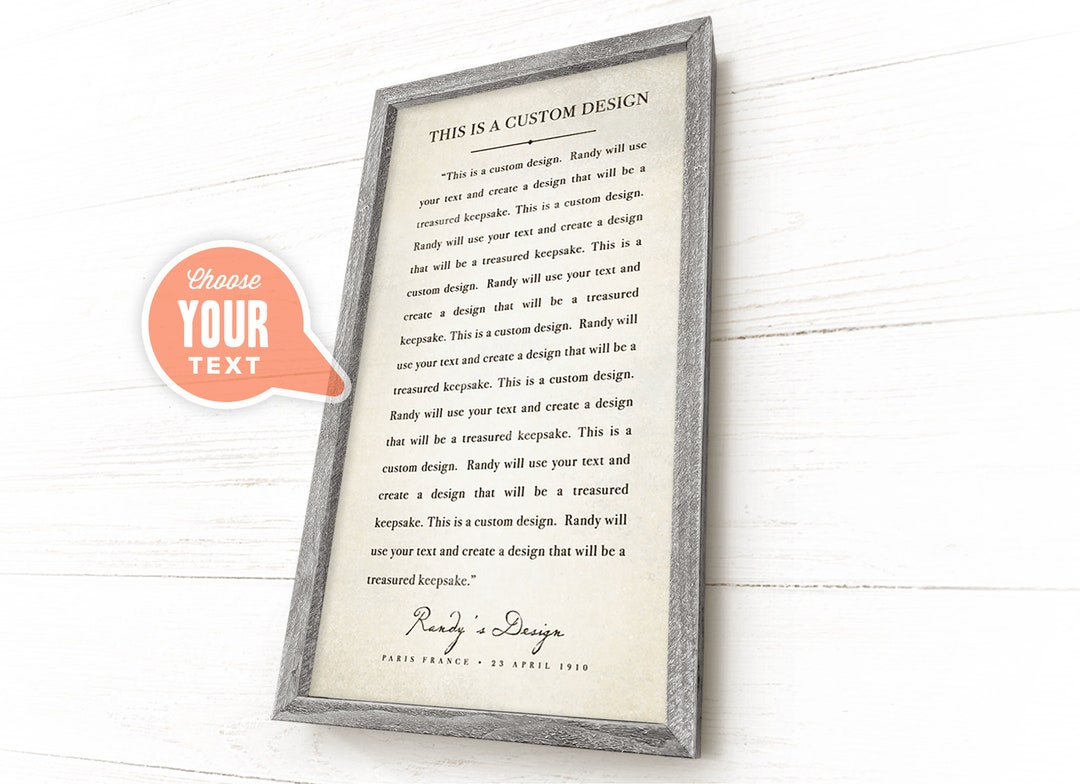 THIS IS A CUSTOM DESIGN
“This is a custom design. Randy will use
your text and create a design that will be a
treasured keepsake. This is a custom design.
Randy will use your text and create a design
that will be a treasured keepsake. This is a
custom design. Randy will use your text and
create a design that will be a treasured
keepsake. This is a custom design. Randy will
use your text and create a design that will be a
treasured keepsake. This is a custom design.
Randy will use your text and create a design
that will be a treasured keepsake. This is a
custom design. Randy will use your text and
create a design that will be a treasured
keepsake. This is a custom design. Randy will
use your text and create a design that will be a
treasured keepsake.”
Randy's Design
PARIS FRANCE • 23 APRIL 1910
Choose
YOUR
TEXT